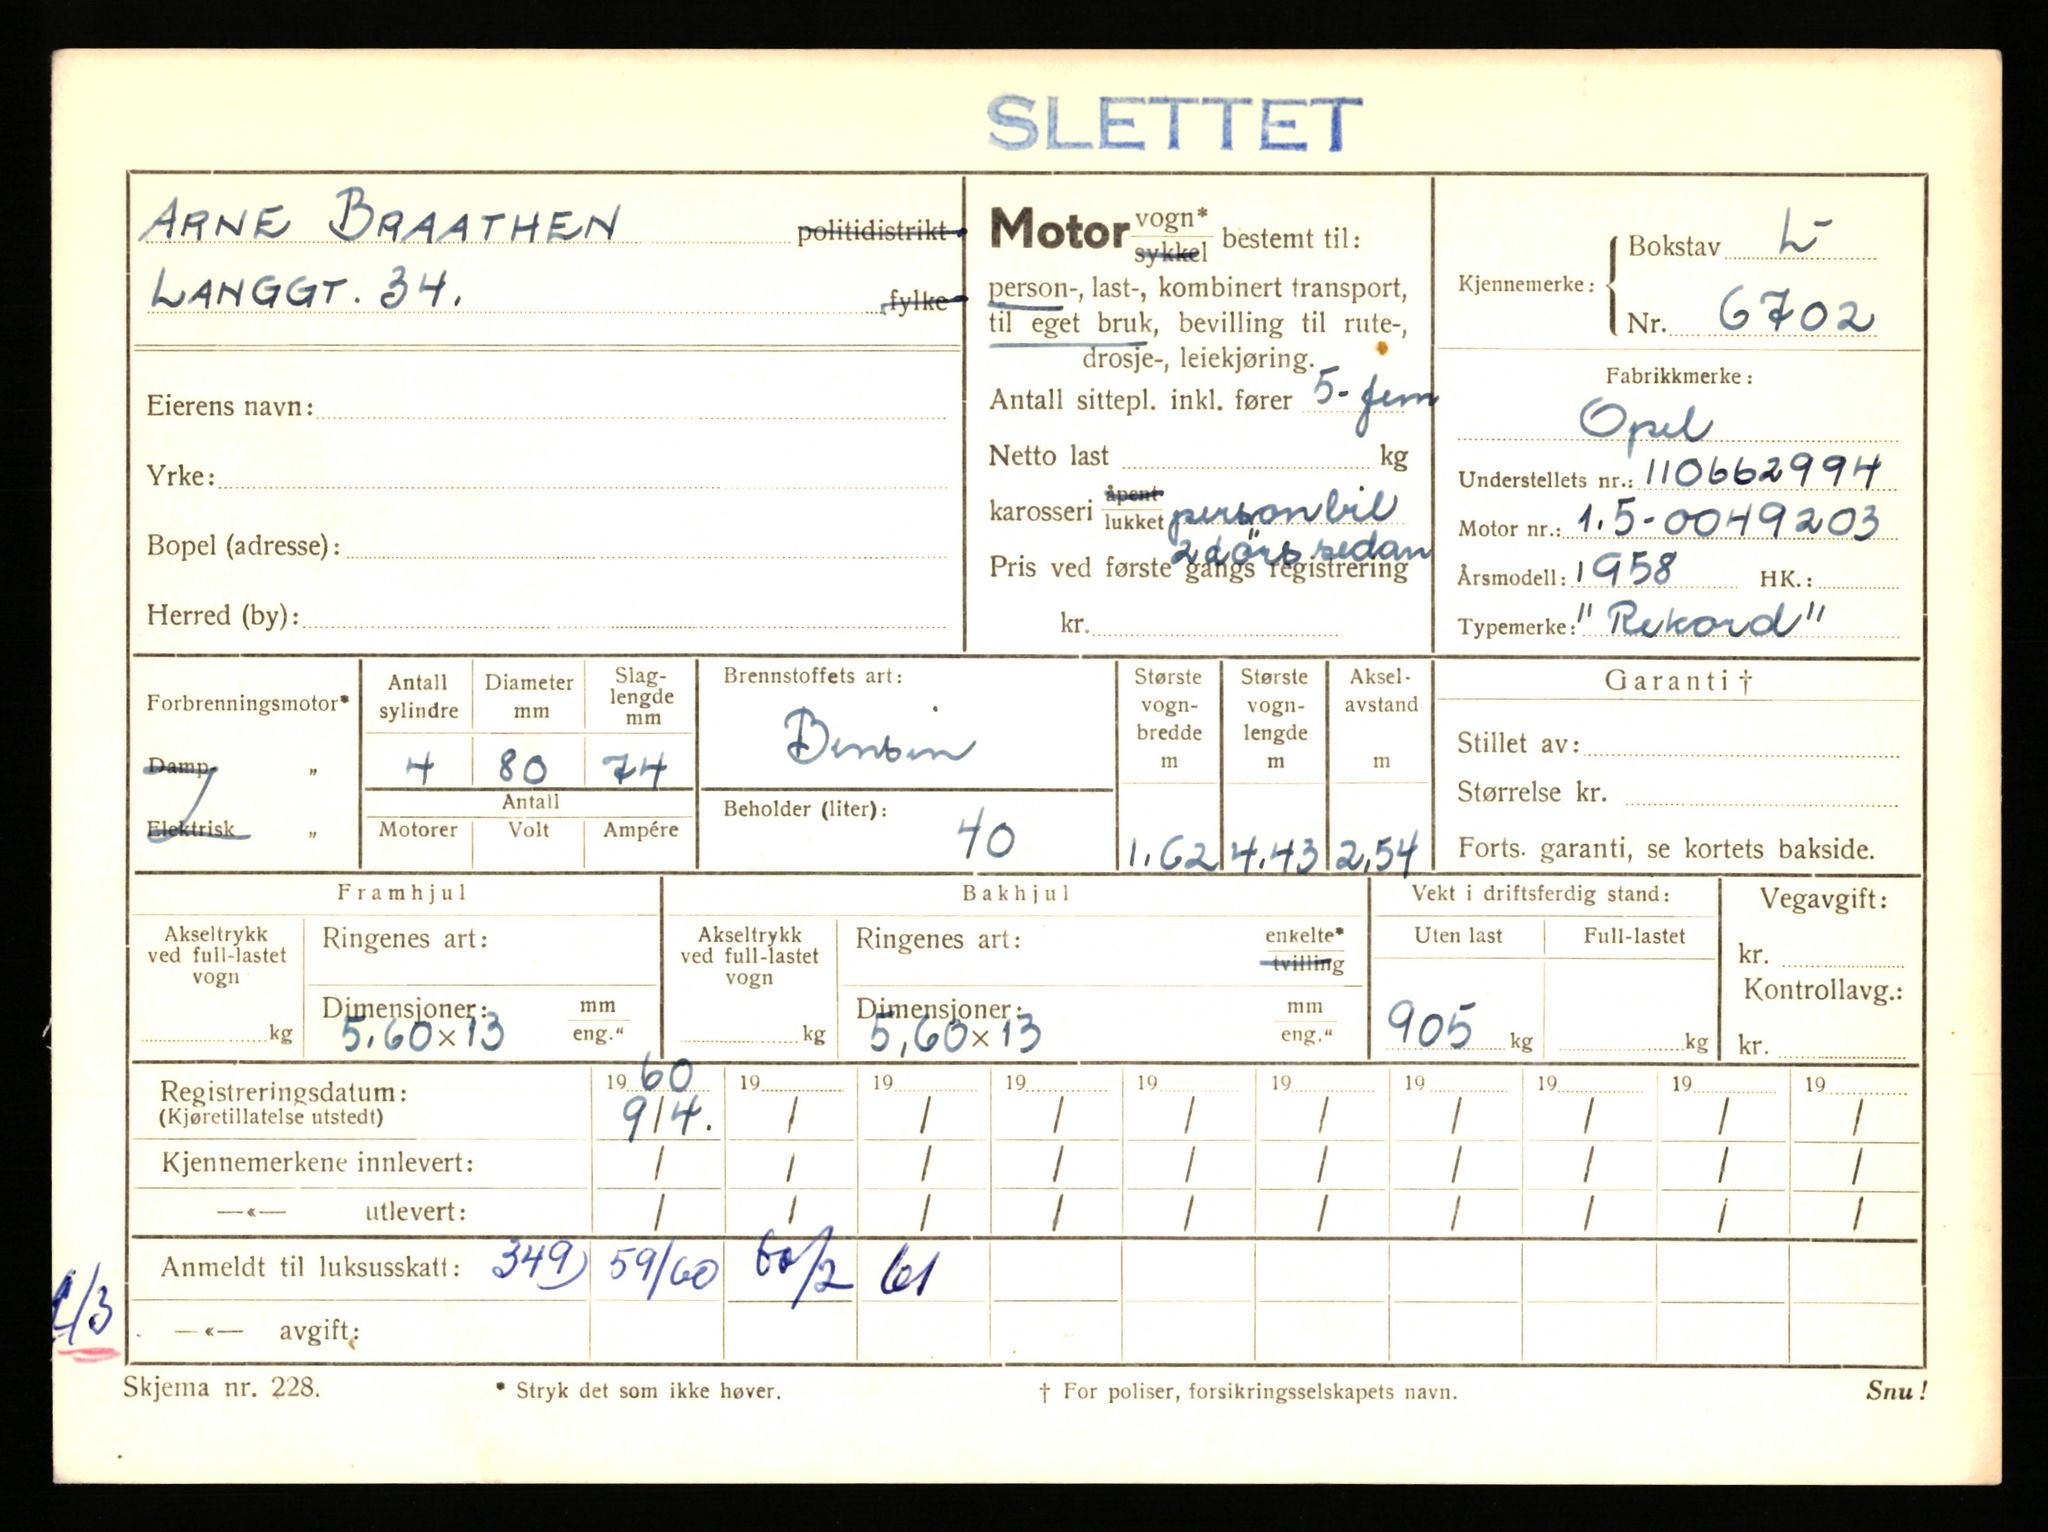 SLETTET
ARNE BRAATHEN politidistrikt
LANGGT. 34. fylke
Eierens navn:
Yrke:
Bopel (adresse):
Herred (by):
Motor vogn* sykkel bestemt til:
person-, last-, kombinert transport,
til eget bruk, bevilling til rute-,
drosje-, leiekjøring.
Antall sittepl. inkl. fører 5- fem
Netto last kg
karosseri åpent lukket personbil
2 dörs sedan
Pris ved første gangs registrering
kr.
Kjennemerke: Bokstav L-
Nr. 6702
Fabrikkmerke:
Opel
Understellets nr.: 110662994
Motor nr.: 1.5-0049203
Årsmodell: 1958 HK.:
Typemerke: "Rekord"
Forbrenningsmotor*
Damp "
Elektrisk "
Antall sylindre
4
Diameter mm
80
Slag-
lengde
mm
74
Antall
Motorer Volt Ampére
Brennstoffets art:
Bensin
Beholder (liter):
40
Største
vogn-
bredde
m
1.62
Største
vogn-
lengde
m
4.43
Aksel-
avstand
m
2,54
Garanti †
Stillet av:
Størrelse kr.
Forts. garanti, se kortets bakside.
Framhjul
Akseltrykk
ved full-lastet
vogn
kg
Ringenes art:
Dimensjoner: mm
5.60×13 eng."
Bakhjul
Akseltrykk
ved full-lastet
vogn
kg
Ringenes art: enkelte*
tvilling
Dimensjoner: mm
5,60×13 eng."
Vekt i driftsferdig stand:
Uten last Full-lastet
905 kg kg
Vegavgift:
kr.
Kontrollavg.:
kr.
Registreringsdatum: 1960 19 19 19 19 19 19 19 19 19
(Kjøretillatelse utstedt) 9/4. / / / / / / / / /
Kjennemerkene innlevert: / / / / / / / / / /
—«— utlevert: / / / / / / / / / /
Anmeldt til luksusskatt: 349) 59/60 60/2 61
—«— avgift:
Skjema nr. 228. * Stryk det som ikke høver. † For poliser, forsikringsselskapets navn. Snu!